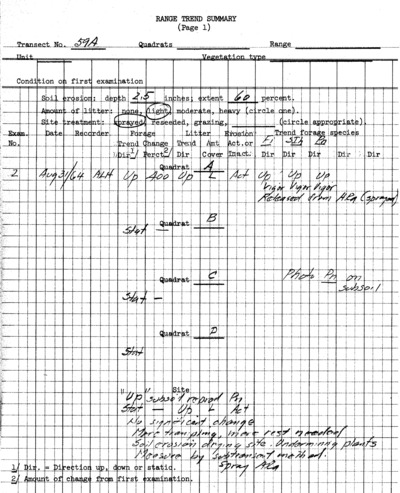 RANGE TREND SUMMARY
(Page 1)
Transect No. 59A Quadrats Range
Unit Vegetation type
Condition on first examination
Soil erosion: depth 2.5 inches; extent 60 percent.
Amount of litter: none, light, moderate, heavy (circle one).
Site treatment: sprayed, reseeded, grazing, (circle appropriate).
Exam. Date Recorder Forage Litter Erosion Trend forage species
No. Trend Change Trend Amt Act.or Fi STh Pn
Dir 1/ Perct 2/ Dir Cover Inact. Dir Dir Dir Dir Dir
Quadrat A
2 Aug 31/64 ALH Up 400 Up L Act Up Up Up
Vigor Vigor Vigor
Released from ARa (spraying)
Quadrat B
Stat —
Quadrat C
Photo Pn on
subsoil
Stat —
Quadrat D
Stat
Site
"Up" subsoil reprod Pn
Stat — Up L Act
No significant change
More trampling, more rest needed
Soil erosion drying site. Undermining plants
Measure by subtransect method.
Spray ARa
1/ Dir. = Direction up, down or static.
2/ Amount of change from first examination.